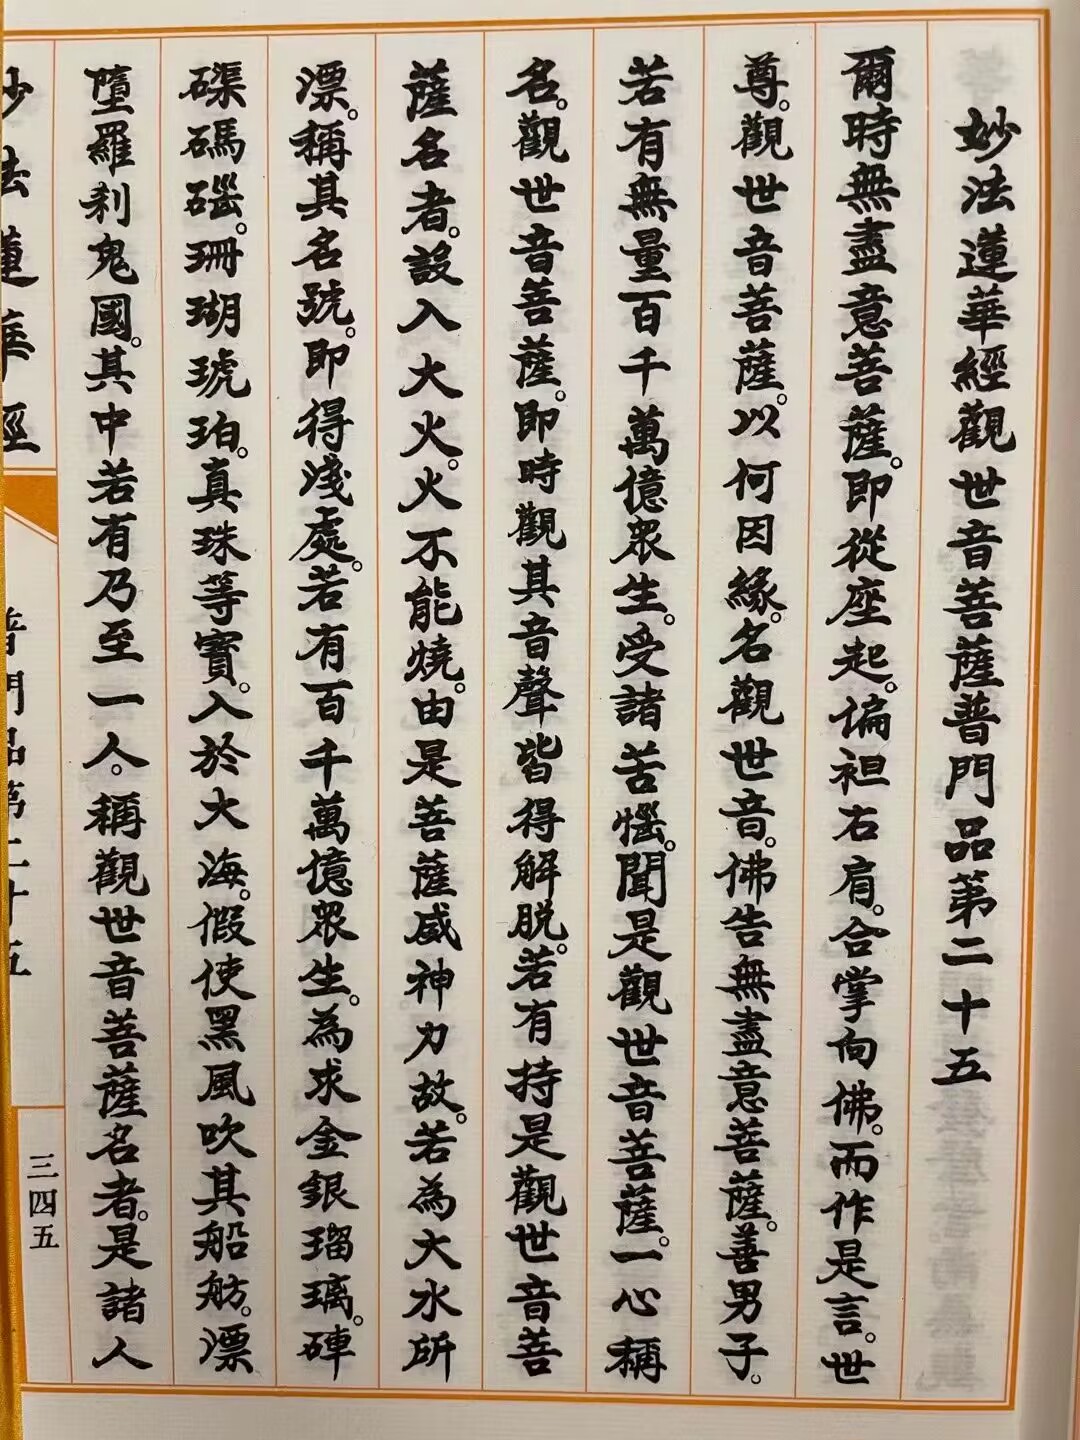 妙法蓮華經觀世音菩薩普門品第二十五
爾時無盡意菩薩。即從座起。偏袒右肩。合掌向佛。而作是言。世
尊。觀世音菩薩。以何因緣。名觀世音。佛告無盡意菩薩。善男子。
若有無量百千萬億眾生。受諸苦惱。聞是觀世音菩薩。一心稱
名。觀世音菩薩。即時觀其音聲皆得解脫。若有持是觀世音菩
薩名者。設入大火。火不能燒。由是菩薩威神力故。若為大水所
漂。稱其名號。即得淺處。若有百千萬億眾生。為求金銀瑠璃。硨
磲碼碯。珊瑚琥珀。真珠等寶。入於大海。假使黑風吹其船舫。漂
墮羅剎鬼國。其中若有乃至一人。稱觀世音菩薩名者。是諸人
妙法蓮華經
普門品第二十五
三四五